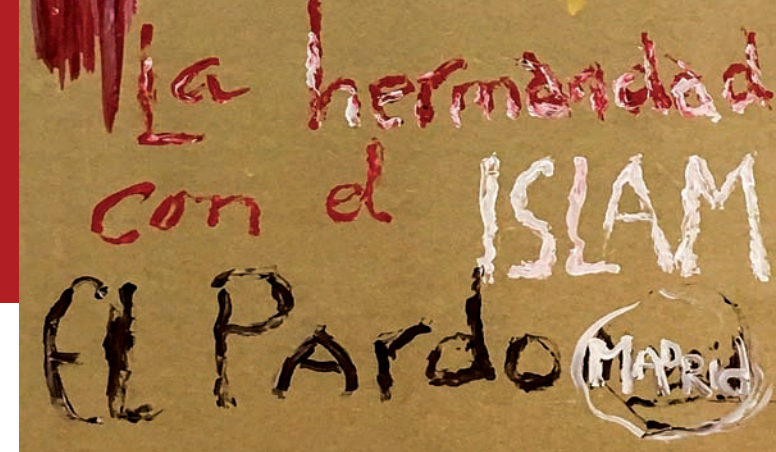 La hermandad
con el ISLAM
EL Pardo MADRid